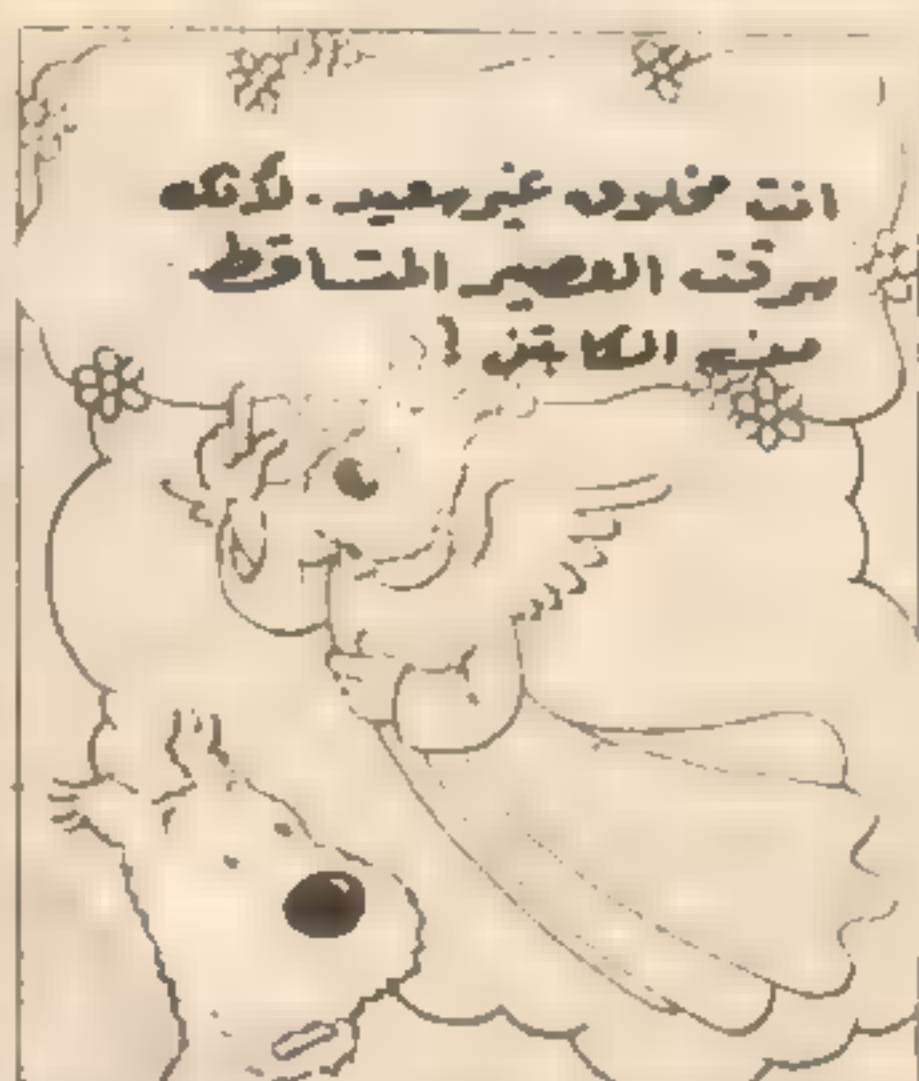 انت مخلوق غير سعيد . لأنك
سرقت العصير الساقط
من الكائن !